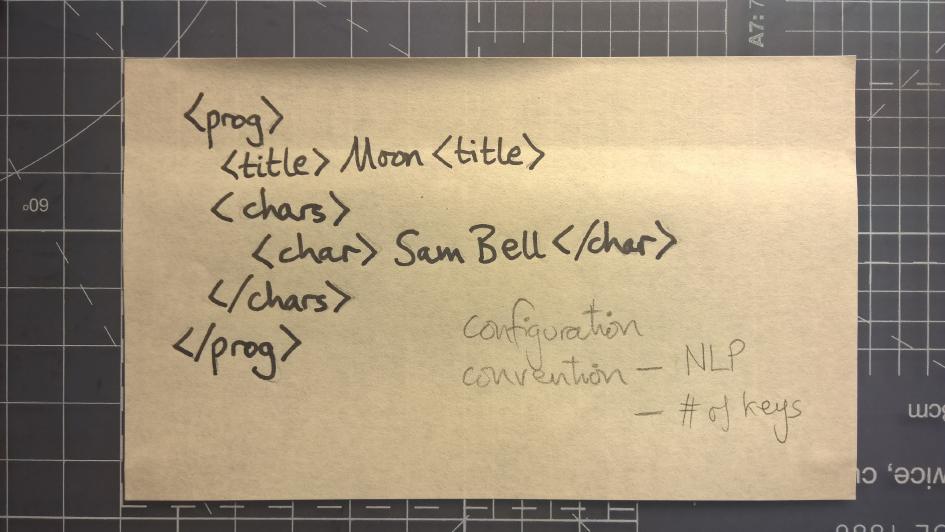 <prog>
<title> Moon <title>
<chars>
<char> Sam Bell </char>
</chars>
</prog>
configuration
convention — NLP
— # of keys
A7:
60°
cm